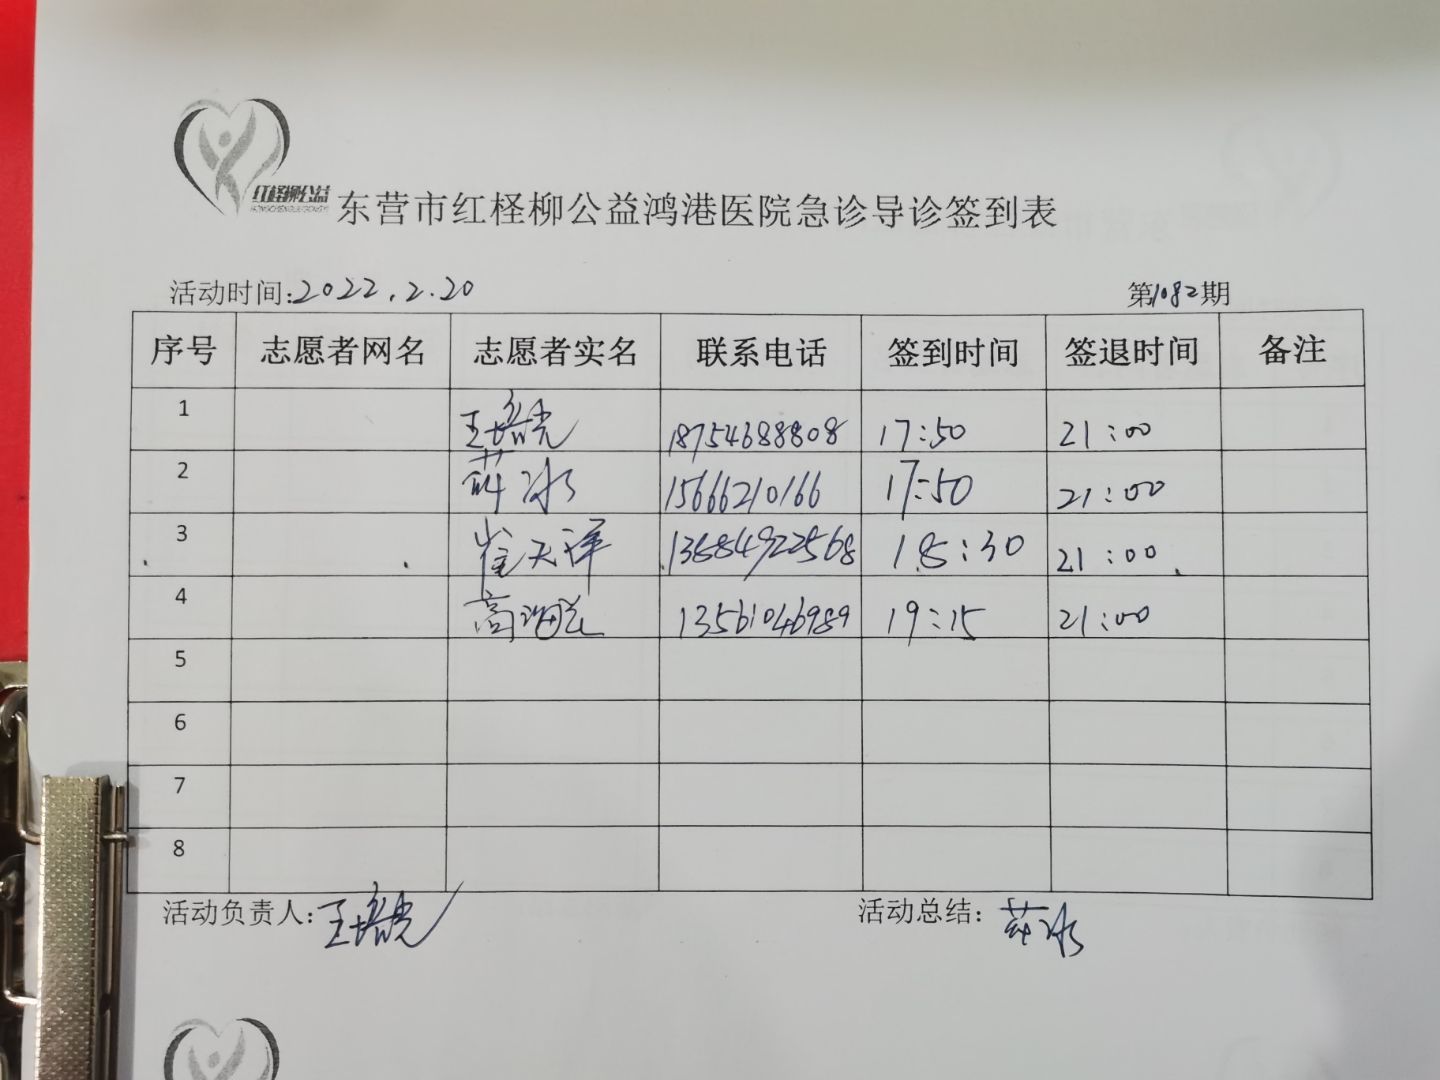 红柽柳公益
东营市红柽柳公益鸿港医院急诊导诊签到表
活动时间:2022.2.20 第1082期
序号 志愿者网名 志愿者实名 联系电话 签到时间 签退时间 备注
1 王培光 18754688808 17:50 21:00
2 薛冰 15666210166 17:50 21:00
3 崔天洋 13684922568 18:30 21:00
4 高 13561046989 19:15 21:00
5
6
7
8
活动负责人:王培光 活动总结:薛冰